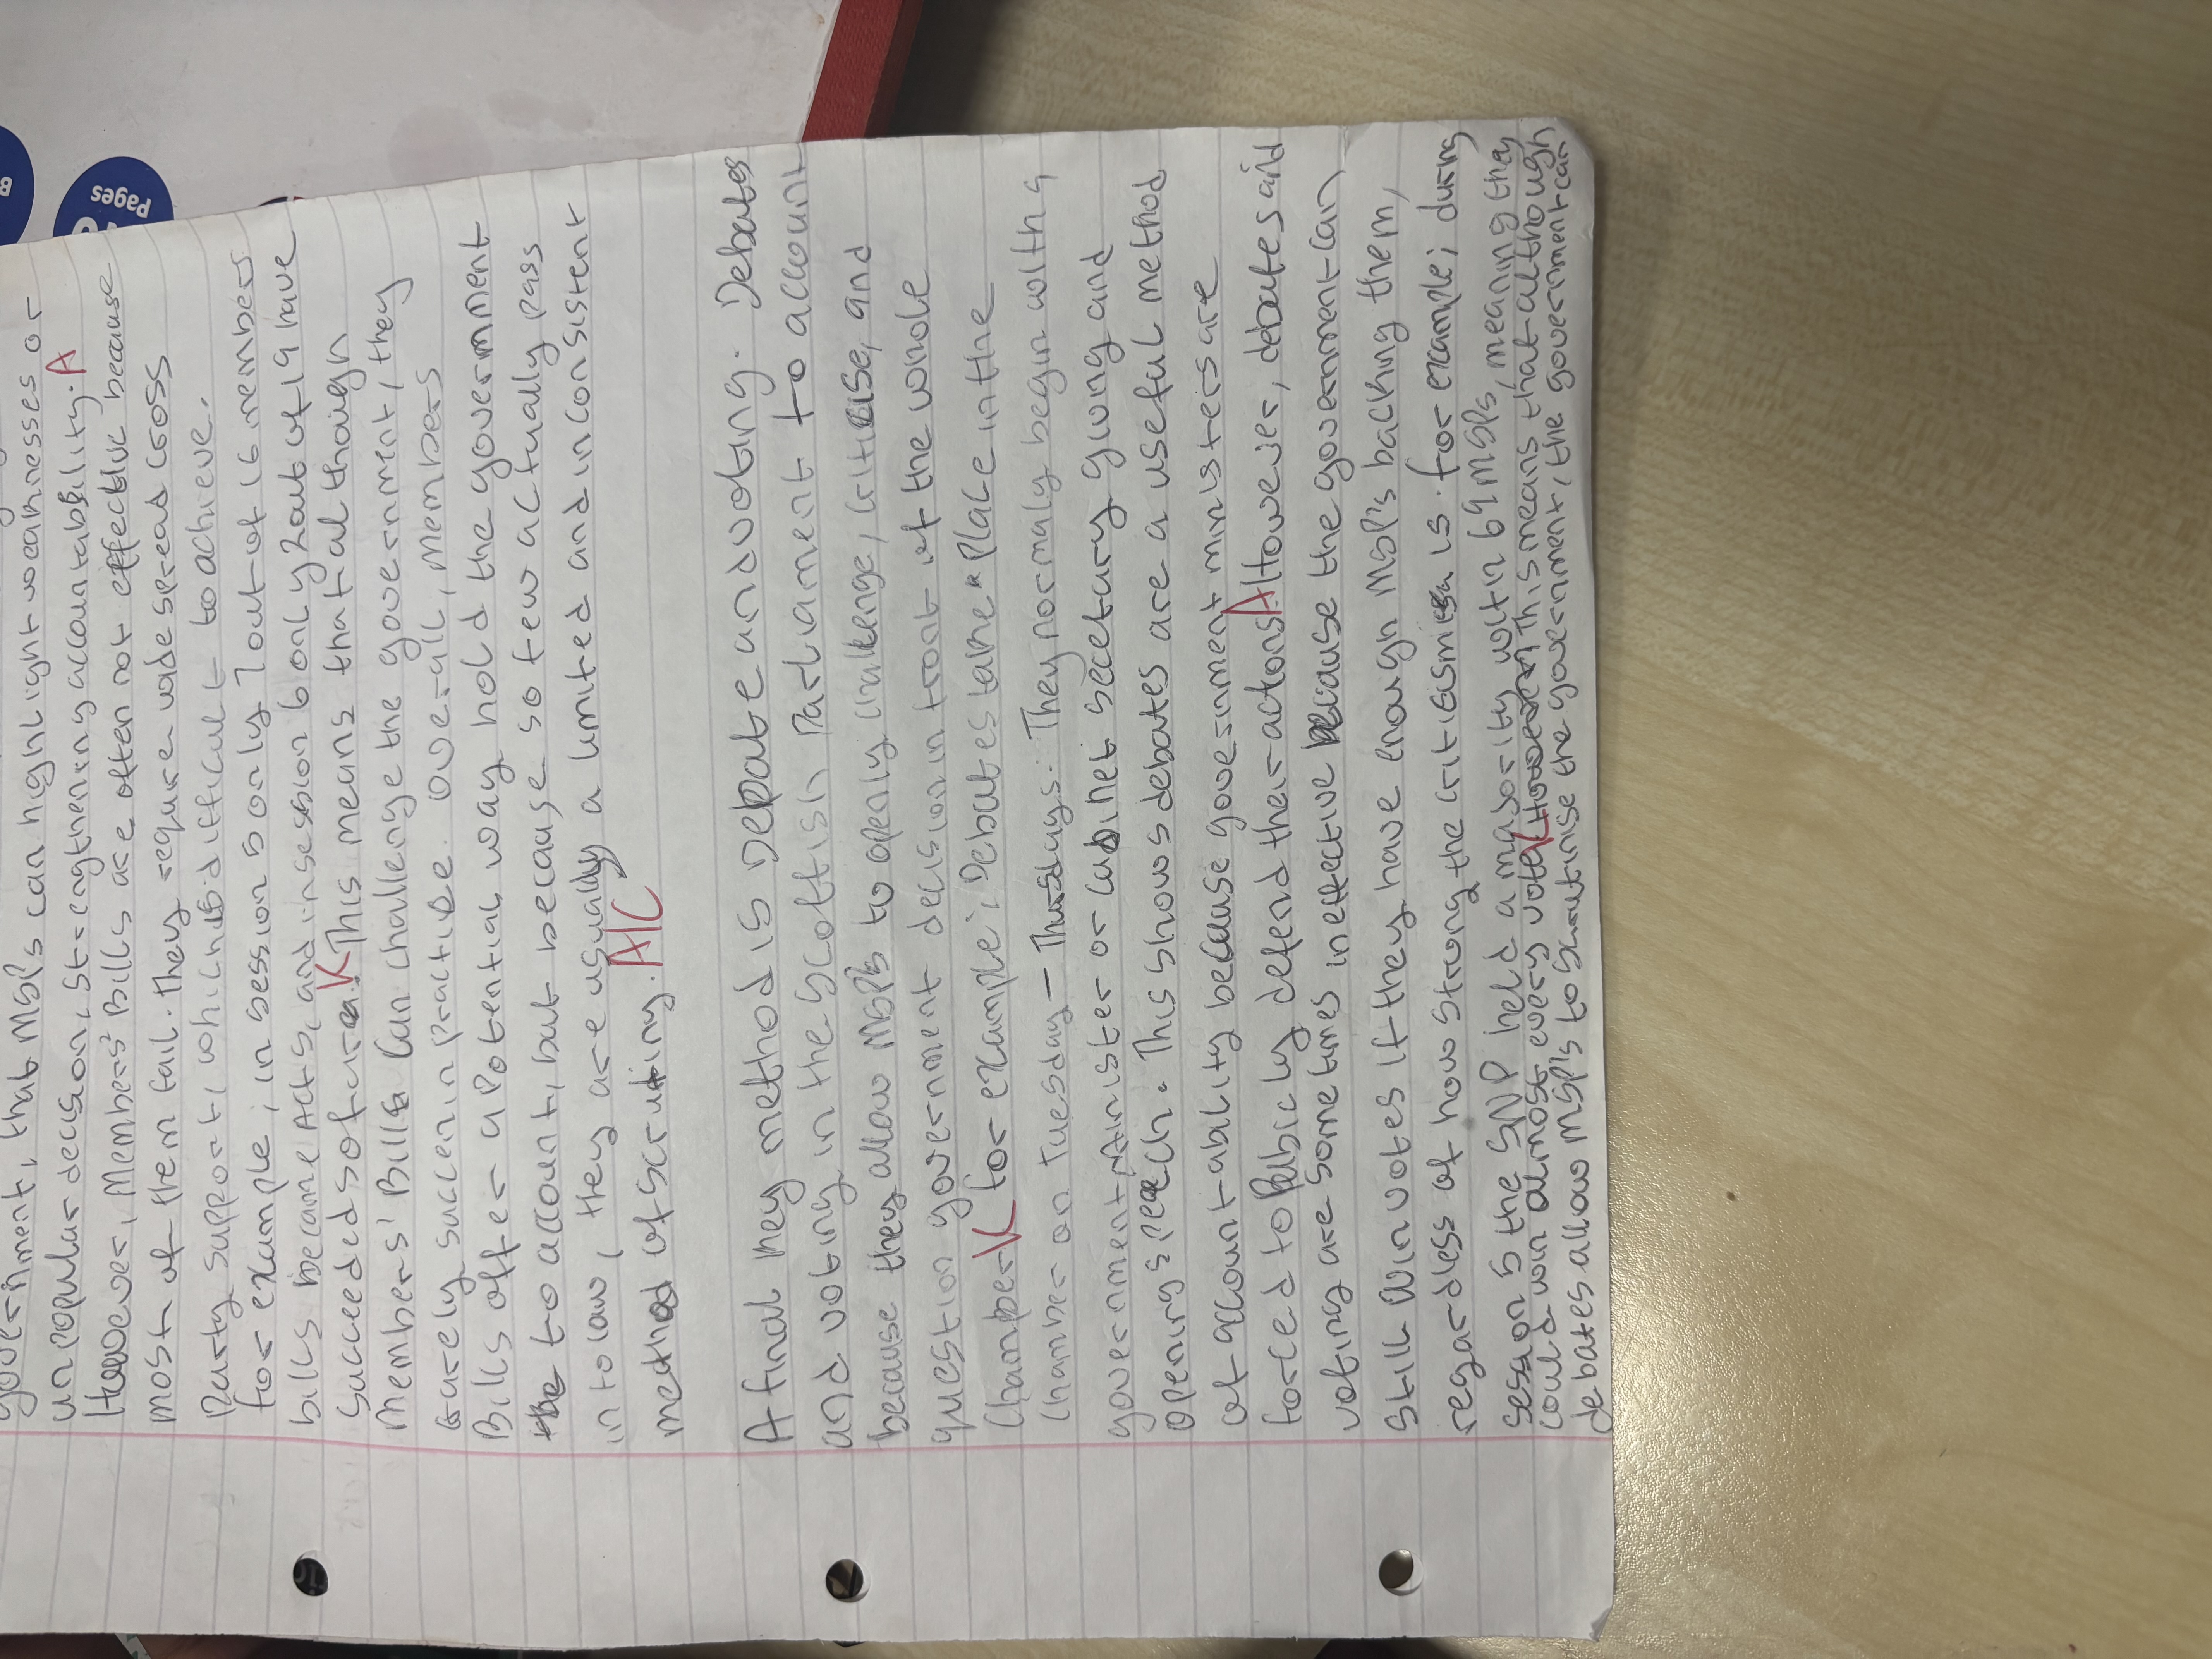 government, that MSPs can highlight weaknesses or
unpopular decison, strengthening accountability. A
However, Members' Bills are often not effective because
most of them fail. they require wide spread cross
Party support, which is difficult to achieve.
for example; in session 5 only 7 out of 16 members
bills became Acts, and in session 6 only 2 out of 19 have
succeeded so far. K This means that although
members' Bills can challenge the government, they
rarely succen in practise. overall, members
Bills offer a potential way hold the government
to account, but because so few actually pass
into law, they are usually a limited and inconsistent
method of scrutiny. A/C
A final key method is Debate and voting. Debates
and voting in the Scottish Parliament to account
because they allow MSP's to openly challenge, criticise, and
question government decision in front of the whole
Chamber K for example; Debates take place in the
Chamber on Tuesday - Thursdays. They normaly begin with a
government minister or cabinet secetary giving and
opening speech. This shows debates are a useful method
of accountability because government ministers are
forced to Pubicly defend their actions A However, debates and
voting are sometimes ineffective because the government can
still win votes if they have enough MSP's backing them,
regardless of how strong the critisism is. for example; during
session 5 the SNP held a majority with 69 MSPs, meaning they
could win almost every vote K This means that although
debates allow MSP's to scrutinise the government, the government can
Pages
B